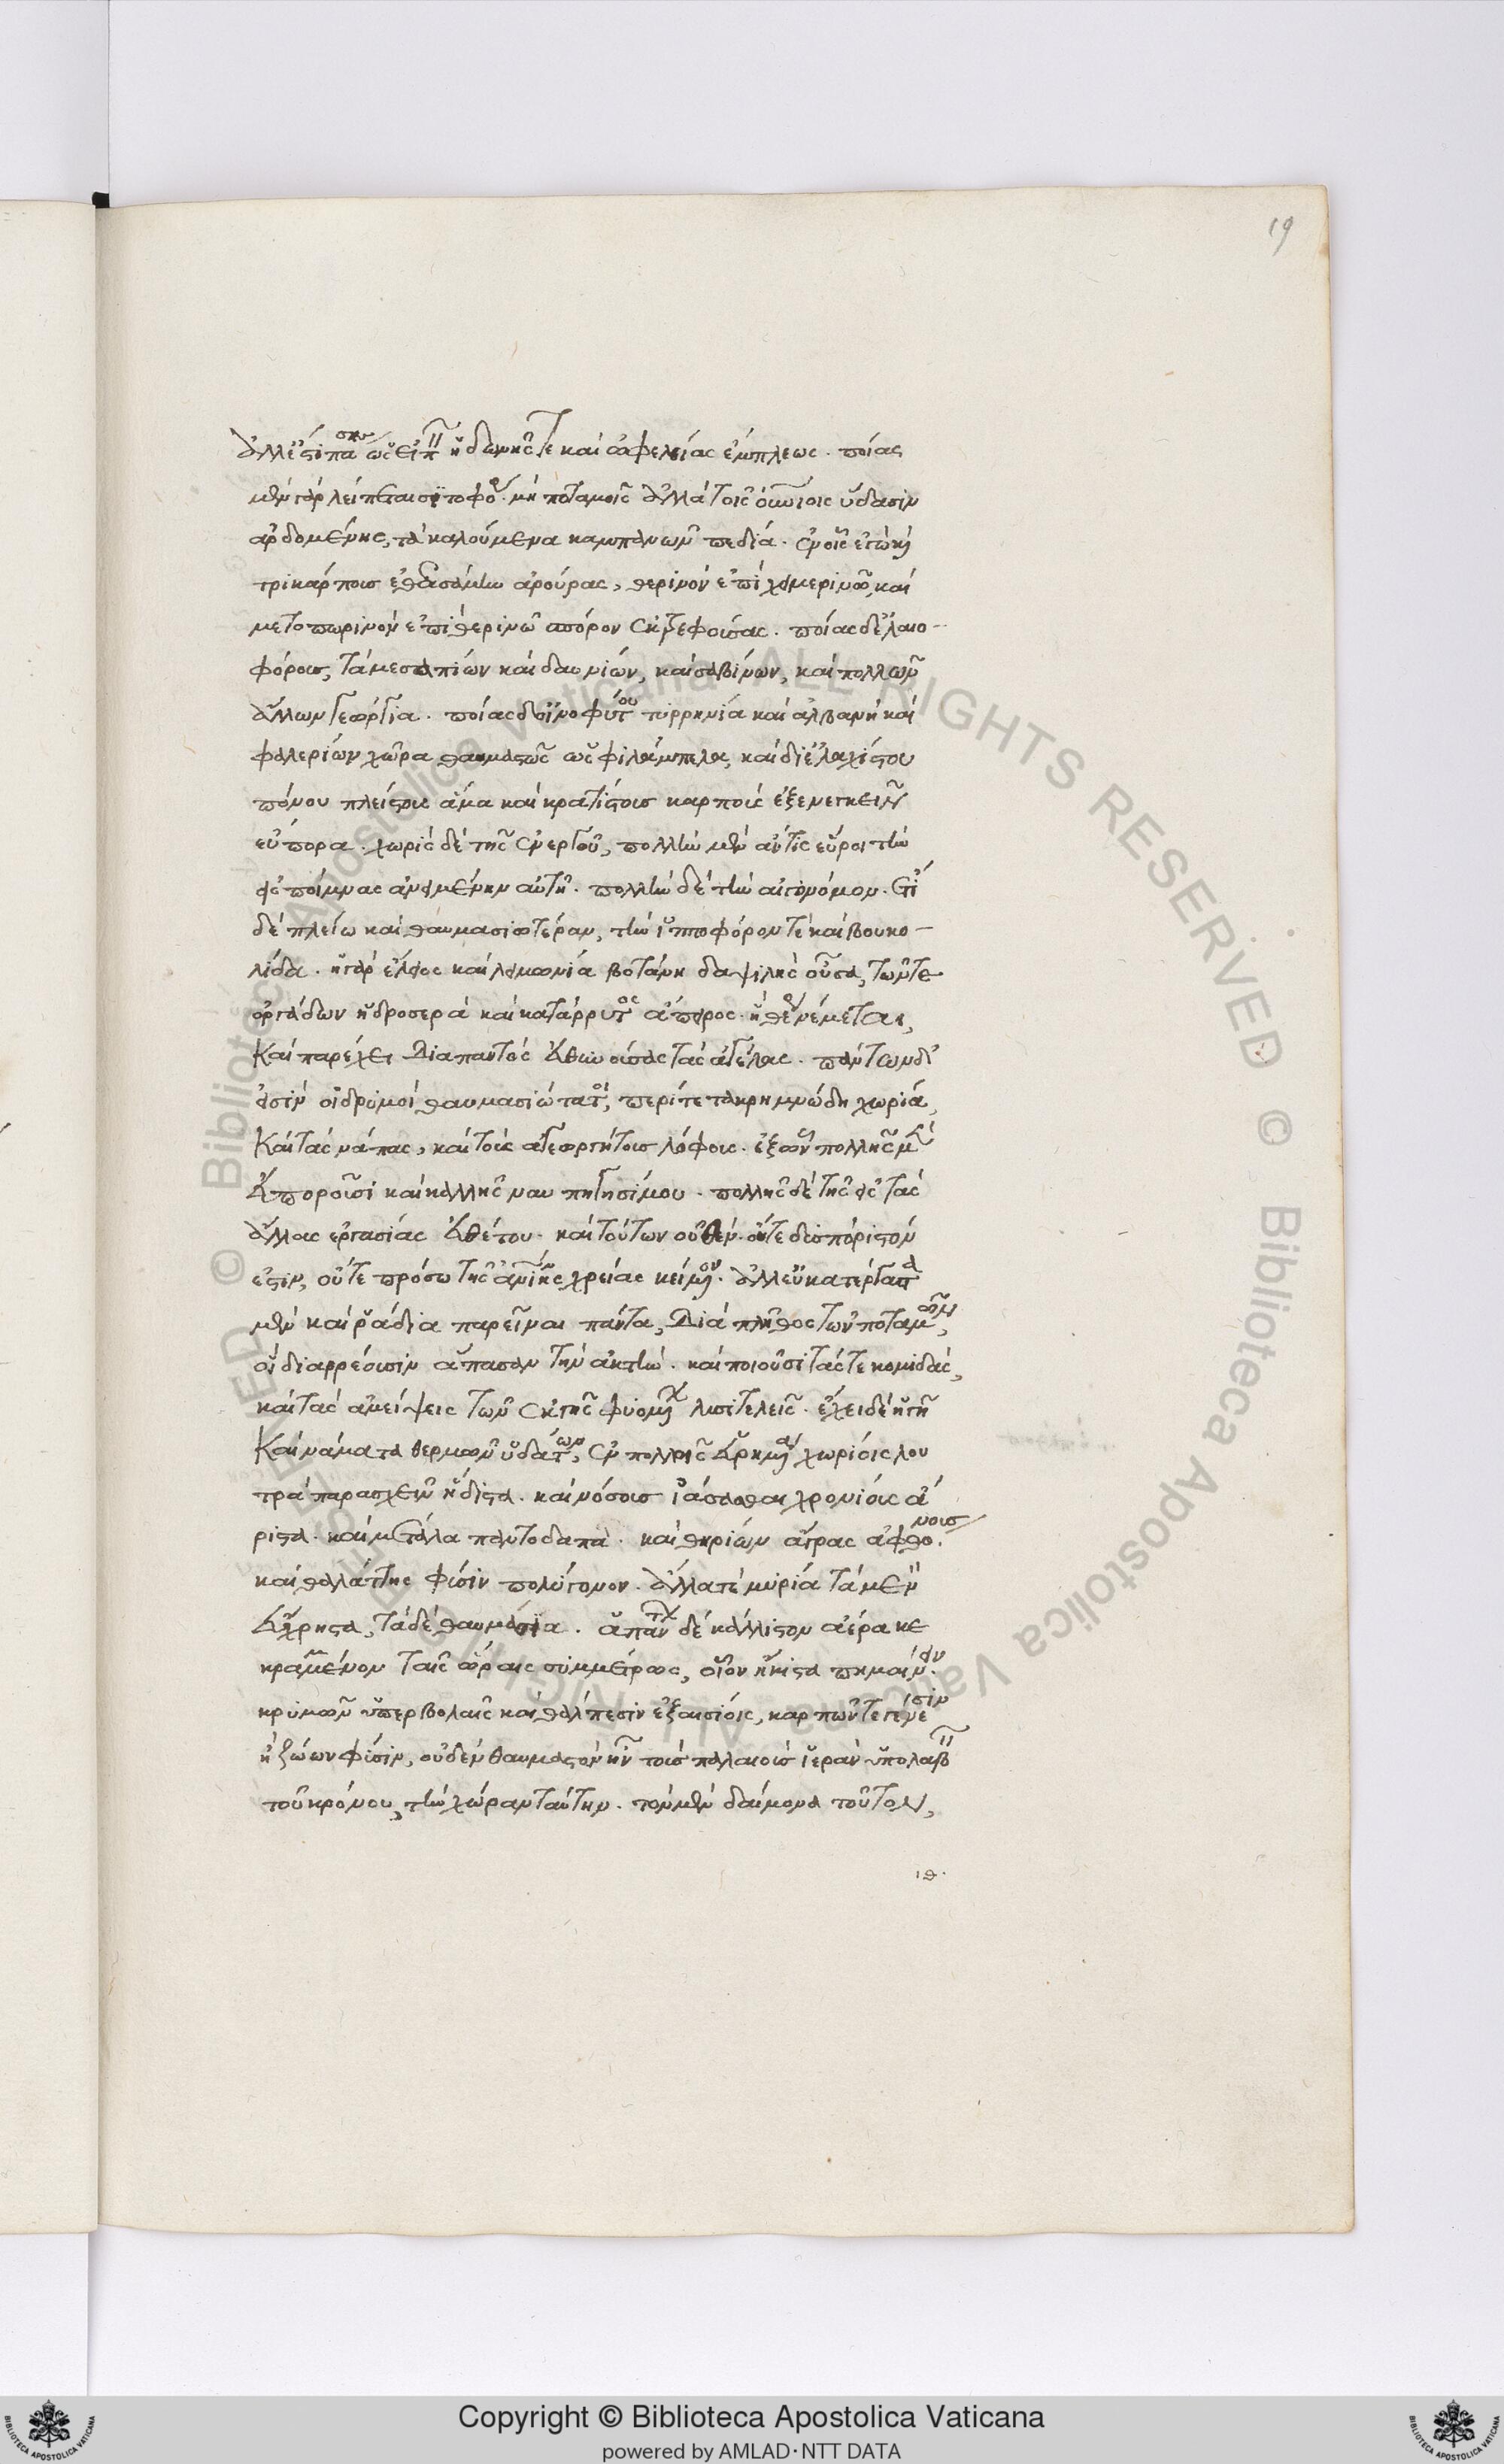 19
ἀλλ' ἔστι πάσης ὡς εἰπεῖν ἡδονῆς τε καὶ ὠφελείας ἔμπλεως. ποίας
μὲν γὰρ λείπεται σιτοφόρου μὴ ποταμοῖς ἀλλὰ τοῖς οὐρανίοις ὕδασιν
ἀρδομένης, τὰ καλούμενα καμπανῶν πεδία. ἐν οἷς ἐγὼ καὶ
τρικάρπους ἐθεασάμην ἀρούρας, θερινὸν ἐπὶ χειμερινῷ, καὶ
μετοπωρινὸν ἐπὶ θερινῷ σπόρον ἐκτρεφούσας. ποίας δ' ἐλαιο-
φόρου, τὰ μεσαπίων καὶ δαυνίων, καὶ σαβίνων, καὶ πολλῶν
ἄλλων γεώργια. ποίας δ' οἰνοφύτου τυρρηνία καὶ ἀλβανὴ καὶ
φαλερίνων χώρα θαυμαστῶς ὡς φιλάμπελα, καὶ δι' ἐλαχίστου
πόνου πλείστους ἅμα καὶ κρατίστους καρποὺς ἐξενεγκεῖν
εὔπορα. χωρὶς δὲ τῆς ἐνεργοῦ, πολλὴν μὲν ἄν τις εὕροι τὴν
εἰς ποίμνας ἀνειμένην αὐτῆς. πολλὴν δὲ τὴν αἰγίνομον. ἔτι
δὲ πλείω καὶ θαυμασιωτέραν, τὴν ἱπποφόρον τε καὶ βουκο-
λίδα. ἡ γὰρ ἕλειος καὶ λειμωνία βοτάνη δαψιλὴς οὖσα, τῶν τε
ὀργάδων ἡ δροσερὰ καὶ κατάρρυτος ἄπειρος. ἣ θέρους νέμεται,
καὶ παρέχει διὰ παντὸς εὐθηνούσας τὰς ἀγέλας. πάντων δ'
εἰσὶν οἱ δρυμοὶ θαυμασιώτατοι, περί τε τὰ κρημνώδη χωρία,
καὶ τὰς νάπας, καὶ τοὺς ἀγεωργήτους λόφους. ἐξ ὧν πολλῆς μὲν
εὐποροῦσι καὶ καλῆς ναυπηγησίμου. πολλῆς δὲ τῆς εἰς τὰς
ἄλλας ἐργασίας εὐθέτου. καὶ τούτων οὐθὲν οὔτε δυσπόριστόν
ἐστιν, οὔτε πρόσω τῆς ἀνθρωπίνης χρείας κείμενον. ἀλλ' εὐκατέργαστα
μὲν καὶ ῥᾴδια παρεῖναι πάντα, διὰ πλῆθος τῶν ποταμῶν,
οἳ διαρρέουσιν ἅπασαν τὴν ἀκτὴν. καὶ ποιοῦσι τάς τε κομιδὰς,
καὶ τὰς ἀμείψεις τῶν ἐκ τῆς φυομένων λυσιτελεῖς. ἔχει δὲ ἡ γῆ
καὶ νάματα θερμῶν ὑδάτων, ἐν πολλοῖς εὑρημένα χωρίοις λου
τρὰ παρασχεῖν ἥδιστα. καὶ νόσους ἰάσασθαι χρονίους ἄ
ριστα. καὶ μέταλλα παντοδαπὰ. καὶ θηρίων ἄγρας ἀφθόνους.
καὶ θαλάττης φύσιν πολύγονον. ἄλλα τε μυρία τὰ μὲν
εὔχρηστα, τὰ δὲ θαυμάσια. ἁπάντων δὲ κάλλιστον ἀέρα κε
κραμένον ταῖς ὥραις συμμέτρως, οἷον ἥκιστα πημαίνειν
κρυμῶν ὑπερβολαῖς καὶ θάλπεσιν ἐξαισίοις, καρπῶν τε γένεσιν
ἢ ζώων φύσιν, οὐδὲν θαυμαστὸν ἦν τοὺς παλαιοὺς ἱερὰν ὑπολαβεῖν
τοῦ κρόνου, τὴν χώραν ταύτην. τὸν μὲν δαίμονα τοῦτον,
ιθ.
© Biblioteca Apostolica Vaticana ALL RIGHTS RESERVED © Biblioteca Apostolica Vaticana ALL RIGHTS RESERVED
Copyright © Biblioteca Apostolica Vaticana
powered by AMLAD·NTT DATA